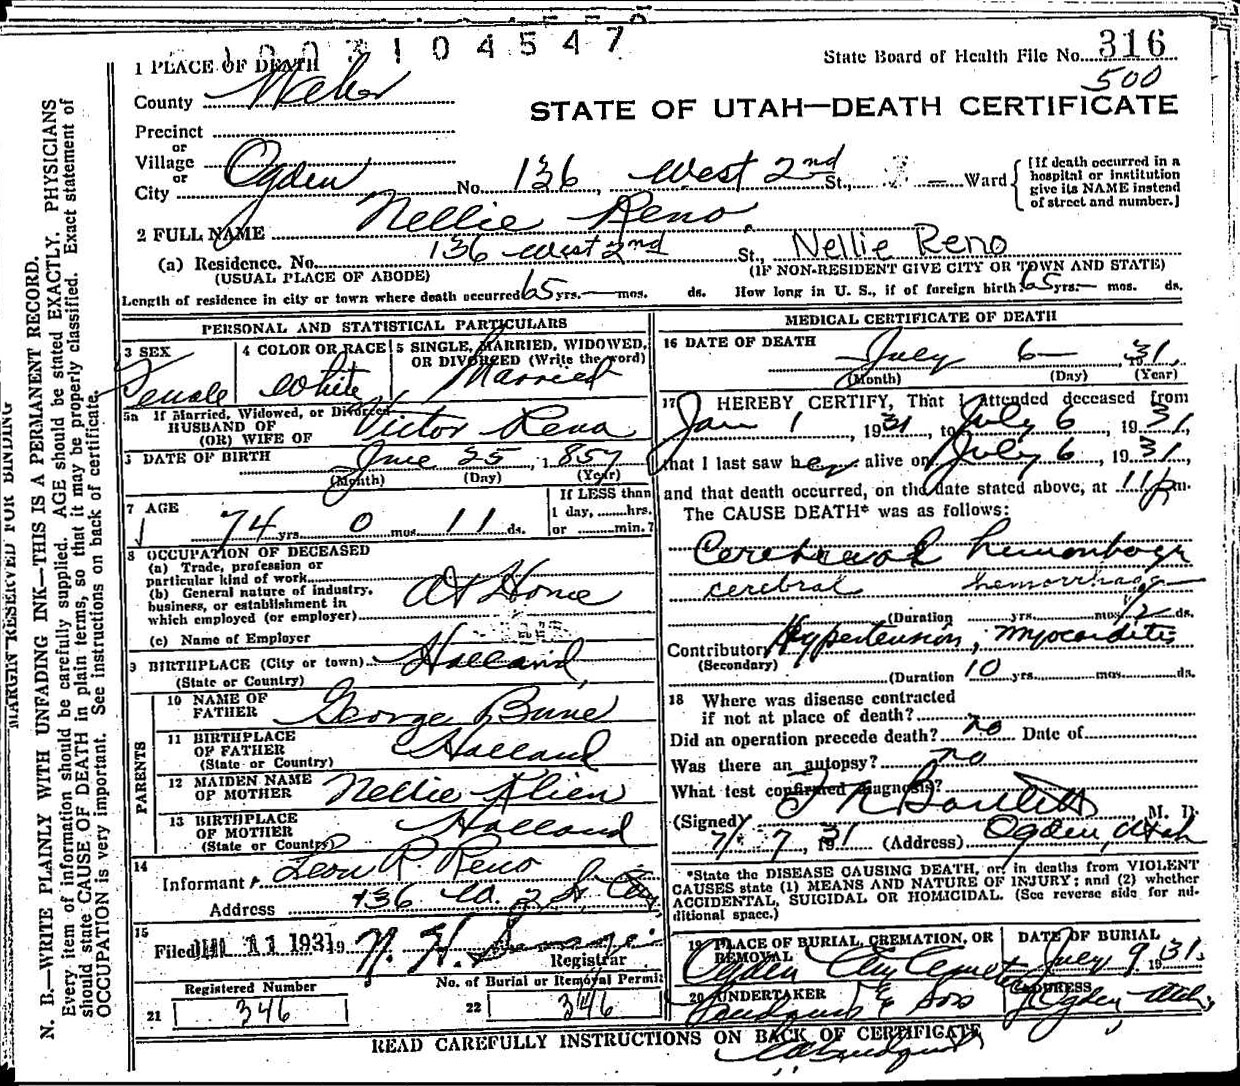 1003104547
State Board of Health File No. 316
500
1 PLACE OF DEATH
County Weber
STATE OF UTAH—DEATH CERTIFICATE
Precinct
or
Village
or
City Ogden No. 136, West 2nd St., — Ward
[If death occurred in a hospital or institution give its NAME instead of street and number.]
2 FULL NAME Nellie Reno
(a) Residence. No. 136 West 2nd St., Nellie Reno
(USUAL PLACE OF ABODE) (IF NON-RESIDENT GIVE CITY OR TOWN AND STATE)
Length of residence in city or town where death occurred 65 yrs. — mos. ds. How long in U. S., if of foreign birth 65 yrs. — mos. ds.
PERSONAL AND STATISTICAL PARTICULARS
3 SEX
Female
4 COLOR OR RACE
White
5 SINGLE, MARRIED, WIDOWED, OR DIVORCED (Write the word)
Married
5a If Married, Widowed, or Divorced
HUSBAND OF
(OR) WIFE OF Victor Reno
DATE OF BIRTH June 25, 1857
(Month) (Day) (Year)
7 AGE
74 yrs. 0 mos. 11 ds.
If LESS than
1 day, ......hrs.
or ......min.?
8 OCCUPATION OF DECEASED
(a) Trade, profession or
particular kind of work
(b) General nature of industry,
business, or establishment in
which employed (or employer)
At Home
(c) Name of Employer
9 BIRTHPLACE (City or town) Holland
(State or Country)
PARENTS
10 NAME OF
FATHER George Bune
11 BIRTHPLACE
OF FATHER Holland
(State or Country)
12 MAIDEN NAME
OF MOTHER Nellie Klien
13 BIRTHPLACE
OF MOTHER Holland
(State or Country)
14
Informant Leon R. Reno
Address 136 W. 2 St. City
15
Filed JUL 11 1931 19
Registrar
Registered Number
21 346
No. of Burial or Removal Permit
22 346
MEDICAL CERTIFICATE OF DEATH
16 DATE OF DEATH
July 6— 1931
(Month) (Day) (Year)
17 I HEREBY CERTIFY, That I Attended deceased from
Jan 1, 1931, to July 6, 1931,
that I last saw her alive on July 6, 1931,
and that death occurred, on the date stated above, at 11 p m.
The CAUSE DEATH* was as follows:
Cerebral hemorrhage
cerebral hemorrhage
(Duration ......yrs. ......mos. 1/2 ds.
Contributory Hypertension, Myocarditis
(Secondary)
(Duration 10 yrs. ......mos. ......ds.
18 Where was disease contracted
if not at place of death?
Did an operation precede death? no Date of
Was there an autopsy? no
What test confirmed diagnosis?
(Signed) Bartlett M. D.
7/7, 1931 (Address) Ogden, Utah
*State the DISEASE CAUSING DEATH, or in deaths from VIOLENT
CAUSES state (1) MEANS AND NATURE OF INJURY; and (2) whether
ACCIDENTAL, SUICIDAL OR HOMICIDAL. (See reverse side for additional space.)
19 PLACE OF BURIAL, CREMATION, OR REMOVAL
Ogden City Cemet
DATE OF BURIAL
July 9 1931
20 UNDERTAKER
& Sons
ADDRESS
Ogden Utah
READ CAREFULLY INSTRUCTIONS ON BACK OF CERTIFICATE
MARGIN RESERVED FOR BINDING
N. B.—WRITE PLAINLY WITH UNFADING INK—THIS IS A PERMANENT RECORD.
Every item of information should be carefully supplied. AGE should be stated EXACTLY. PHYSICIANS
should state CAUSE OF DEATH in plain terms, so that it may be properly classified. Exact statement of
OCCUPATION is very important. See instructions on back of certificate.